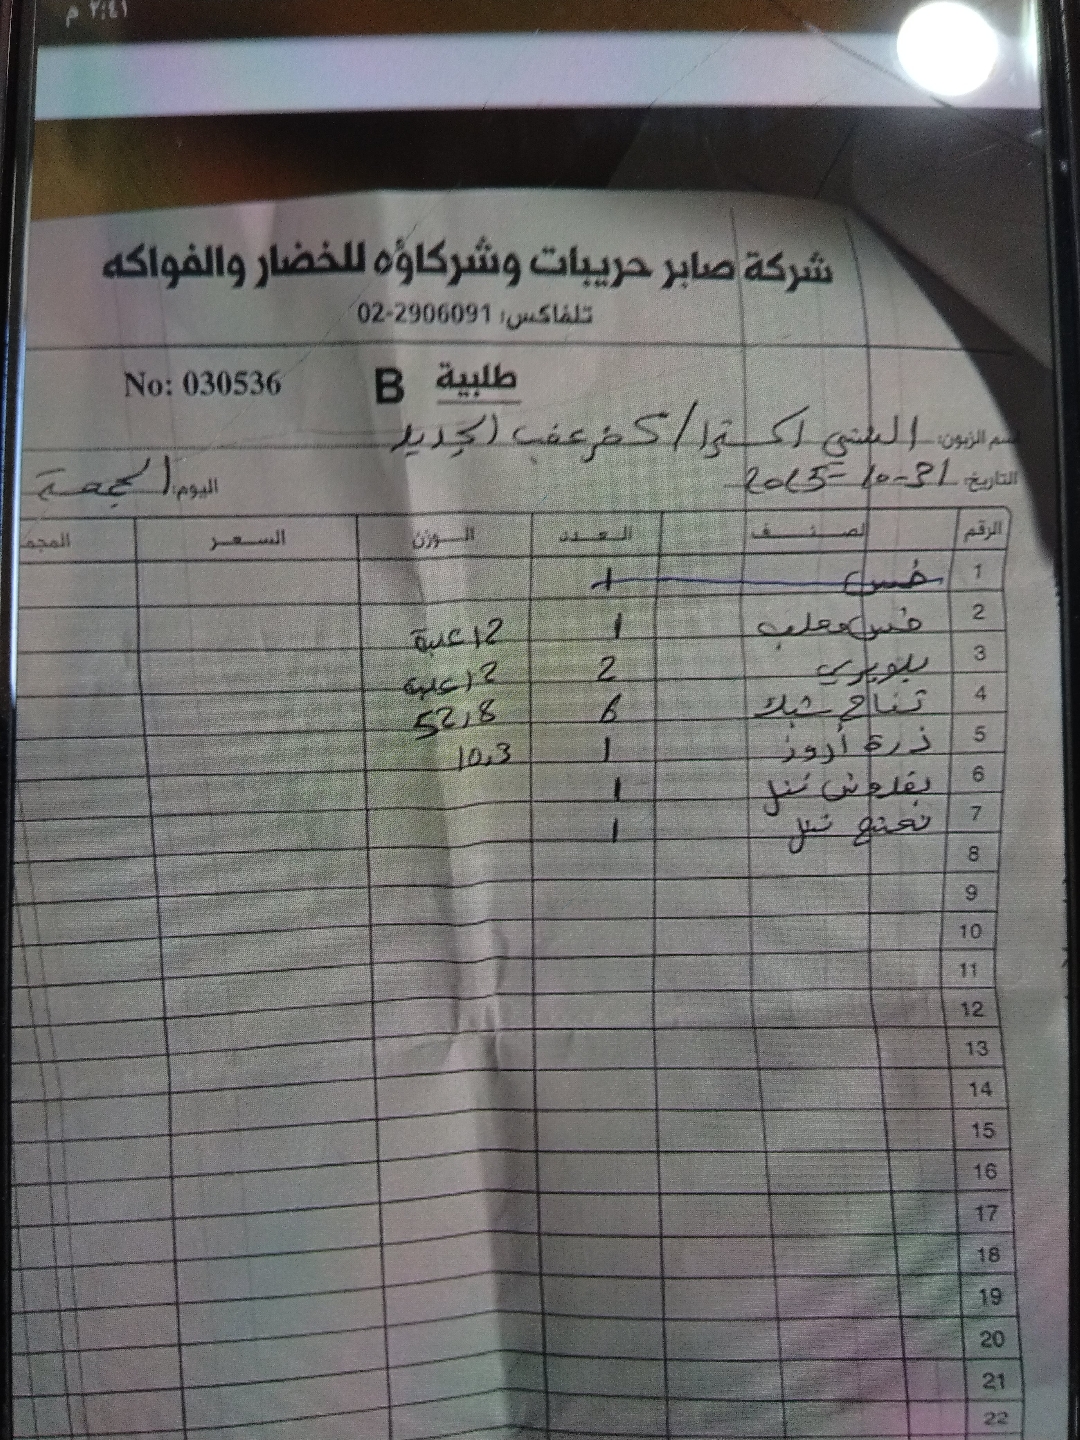 ٢:٤١ م
شركة صابر حريبات وشركاؤه للخضار والفواكه
تلفاكس: 02-2906091
طلبية B No: 030536
اسم الزبون: الشني اكسترا / كفر عقب الجديد
التاريخ: 31-10-2025 اليوم: الجمعة
الرقم الصنف العدد الوزن السعر المجم
1 خس 1
2 خس معلب 1 12 علبة
3 بلوبيري 2 12 علبة
4 تفاح شبك 6 52,8
5 ذرة أروز 1 10,3
6 بقدونس شتل 1
7 نعنع شتل 1
8
9
10
11
12
13
14
15
16
17
18
19
20
21
22